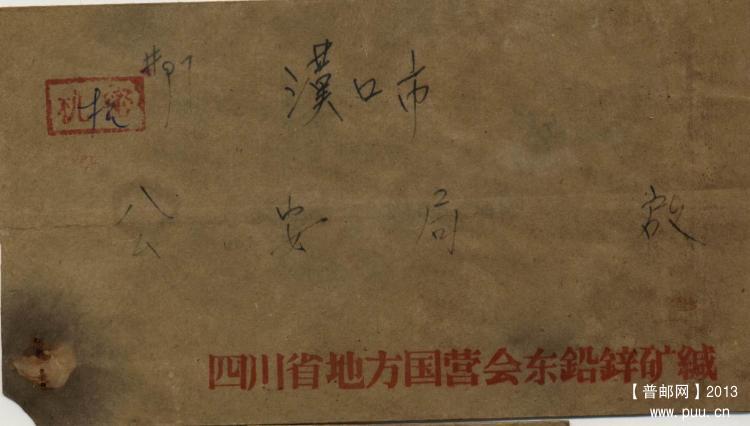 #97
漢口市
机密
公安局 啟
四川省地方国营会东鉛鋅矿缄
【普邮网】2013
www.puu.cn